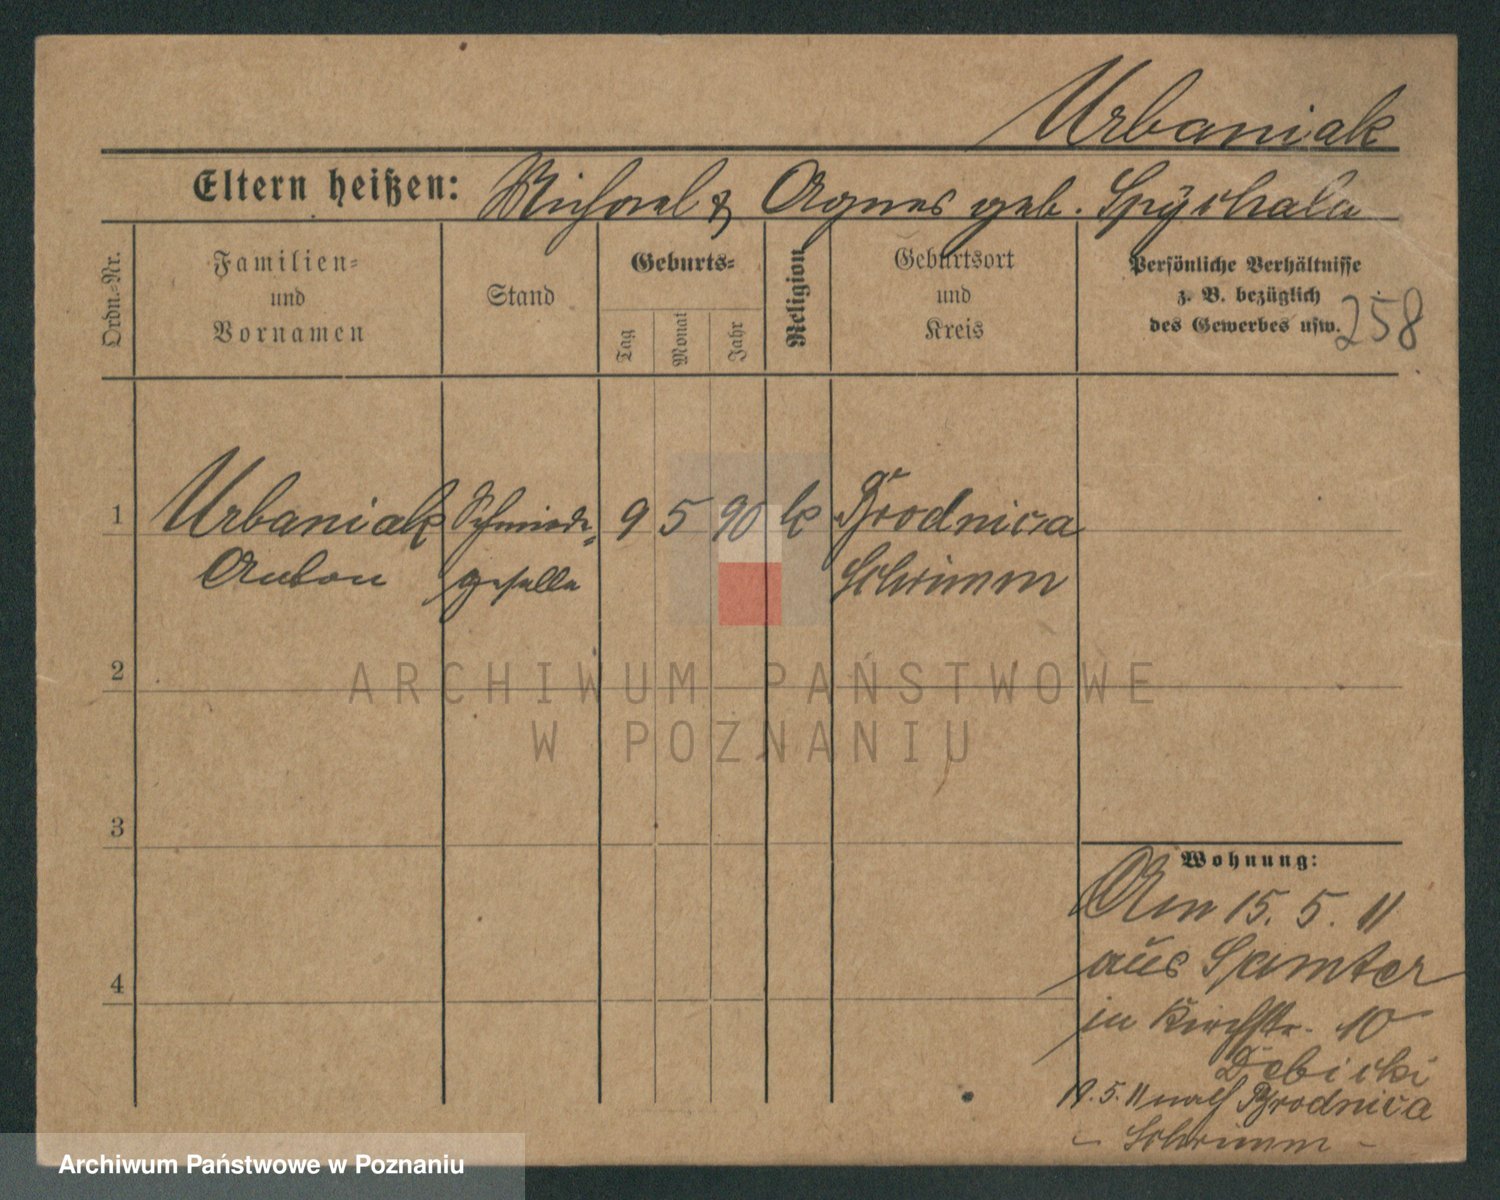 Urbaniak
Eltern heißen: Michael & Agnes geb. Spychala
Ordn.-Nr.
Familien-
und
Vornamen
Stand
Geburts-
Tag
Monat
Jahr
Religion
Geburtsort
und
Kreis
Persönliche Verhältnisse
z. B. bezüglich
des Gewerbes usw.
258
1 Urbaniak Schmiede- 9 5 90 k Brodnica
Anton geselle Schrimm
2
3
4
Wohnung:
Am 15. 5. 11
aus Samter
in Kirchstr. 10
Debicki
5. 11 nach Brodnica
- Schrimm -
ARCHIWUM PAŃSTWOWE
W POZNANIU
Archiwum Państwowe w Poznaniu